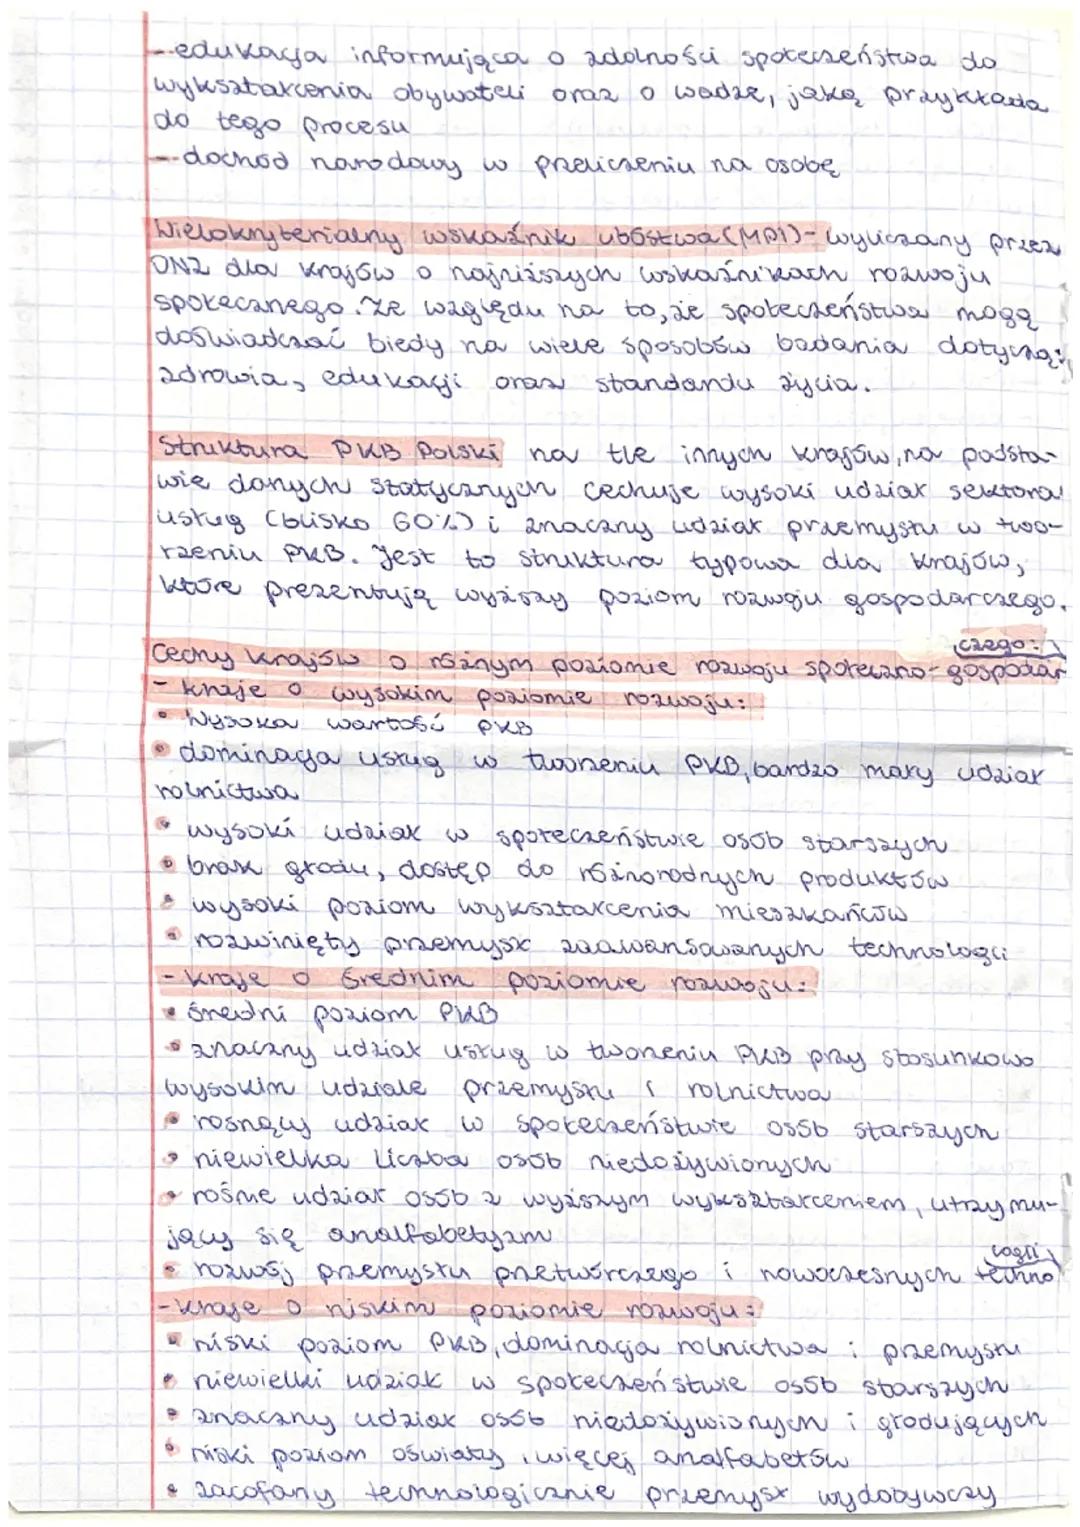 -edukacja informująca o zdolności społeczeństwa do
wykształcenia obywateli oraz o wadze, jaką przykłada
do tego procesu
-dochód narodowy w przeliczeniu na osobę
Wielokryterialny wskaźnik ubóstwa (MPI)- wyliczany przez
ONZ dla krajów o najniższych wskaźnikach rozwoju
społecznego. Ze względu na to, że społeczeństwa mogą
doświadczać biedy na wiele sposobów badania dotyczą:
zdrowia, edukacji oraz standardu życia.
Struktura PKB Polski na tle innych krajów, na podsta-
wie danych statycznych cechuje wysoki udział sektora
usług (blisko 60%) i znaczny udział przemysłu w two-
rzeniu PKB. Jest to struktura typowa dla krajów,
które prezentują wyższy poziom rozwoju gospodarczego.
czego:
Cechy krajów o różnym poziomie rozwoju społeczno-gospodar
- kraje o wysokim poziomie rozwoju:
• Wysoka wartość PKB
• dominacja usług w tworzeniu PKB, bardzo mały udział
rolnictwa
• wysoki udział w społeczeństwie osób starszych
• brak głodu, dostęp do różnorodnych produktów
• wysoki poziom wykształcenia mieszkańców
• rozwinięty przemysł zaawansowanych technologii
- kraje o średnim poziomie rozwoju:
• średni poziom PKB
• znaczny udział usług w tworzeniu PKB przy stosunkowo
wysokim udziale przemysłu i rolnictwa
• rosnący udział w społeczeństwie osób starszych
• niewielka liczba osób niedożywionych
• rośnie udział osób z wyższym wykształceniem, utrzymu-
jący się analfabetyzm
logii
• rozwój przemysłu przetwórczego i nowoczesnych techno
-kraje o niskim poziomie rozwoju:
• niski poziom PKB, dominacja rolnictwa i przemysłu
• niewielki udział w społeczeństwie osób starszych
• znaczny udział osób niedożywionych i głodujących
• niski poziom oświaty, więcej analfabetów
• zacofany technologicznie przemysł wydobywczy